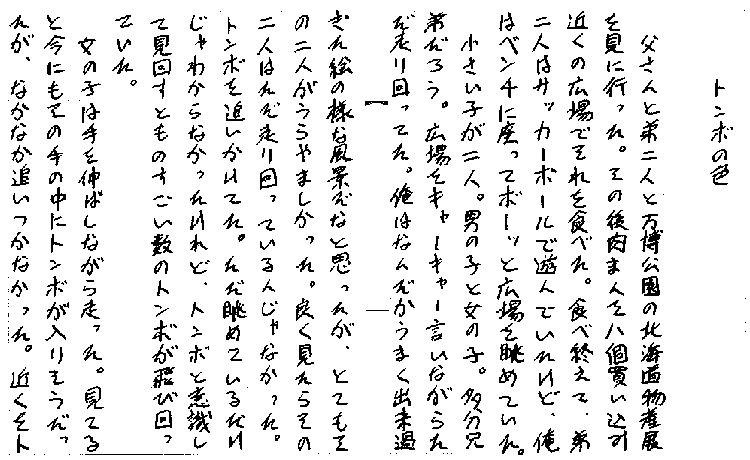 トンボの色
父さんと弟二人と万博公園の北海道物産展
を見に行った。その後肉まんを八個買い込み
近くの広場でそれを食べた。食べ終えて、弟
二人はサッカーボールで遊んでいたけど、俺
はベンチに座ってボーッと広場を眺めていた。
小さい子が二人。男の子と女の子。多分兄
弟だろう。広場をキャーキャー言いながらた
だ走り回ってた。俺はなんだかうまく出来過
ぎた絵の様な風景だなと思ったが、とてもそ
の二人がうらやましかった。良く見たらその
二人はただ走り回っているんじゃなかった。
トンボを追いかけてた。ただ眺めているだけ
じゃわからなかったけれど、トンボと意識し
て見回すとものすごい数のトンボが飛び回っ
ていた。
女の子は手を伸ばしながら走った。見てる
と今にもその手の中にトンボが入りそうだっ
たが、なかなか追いつかなかった。近くをト